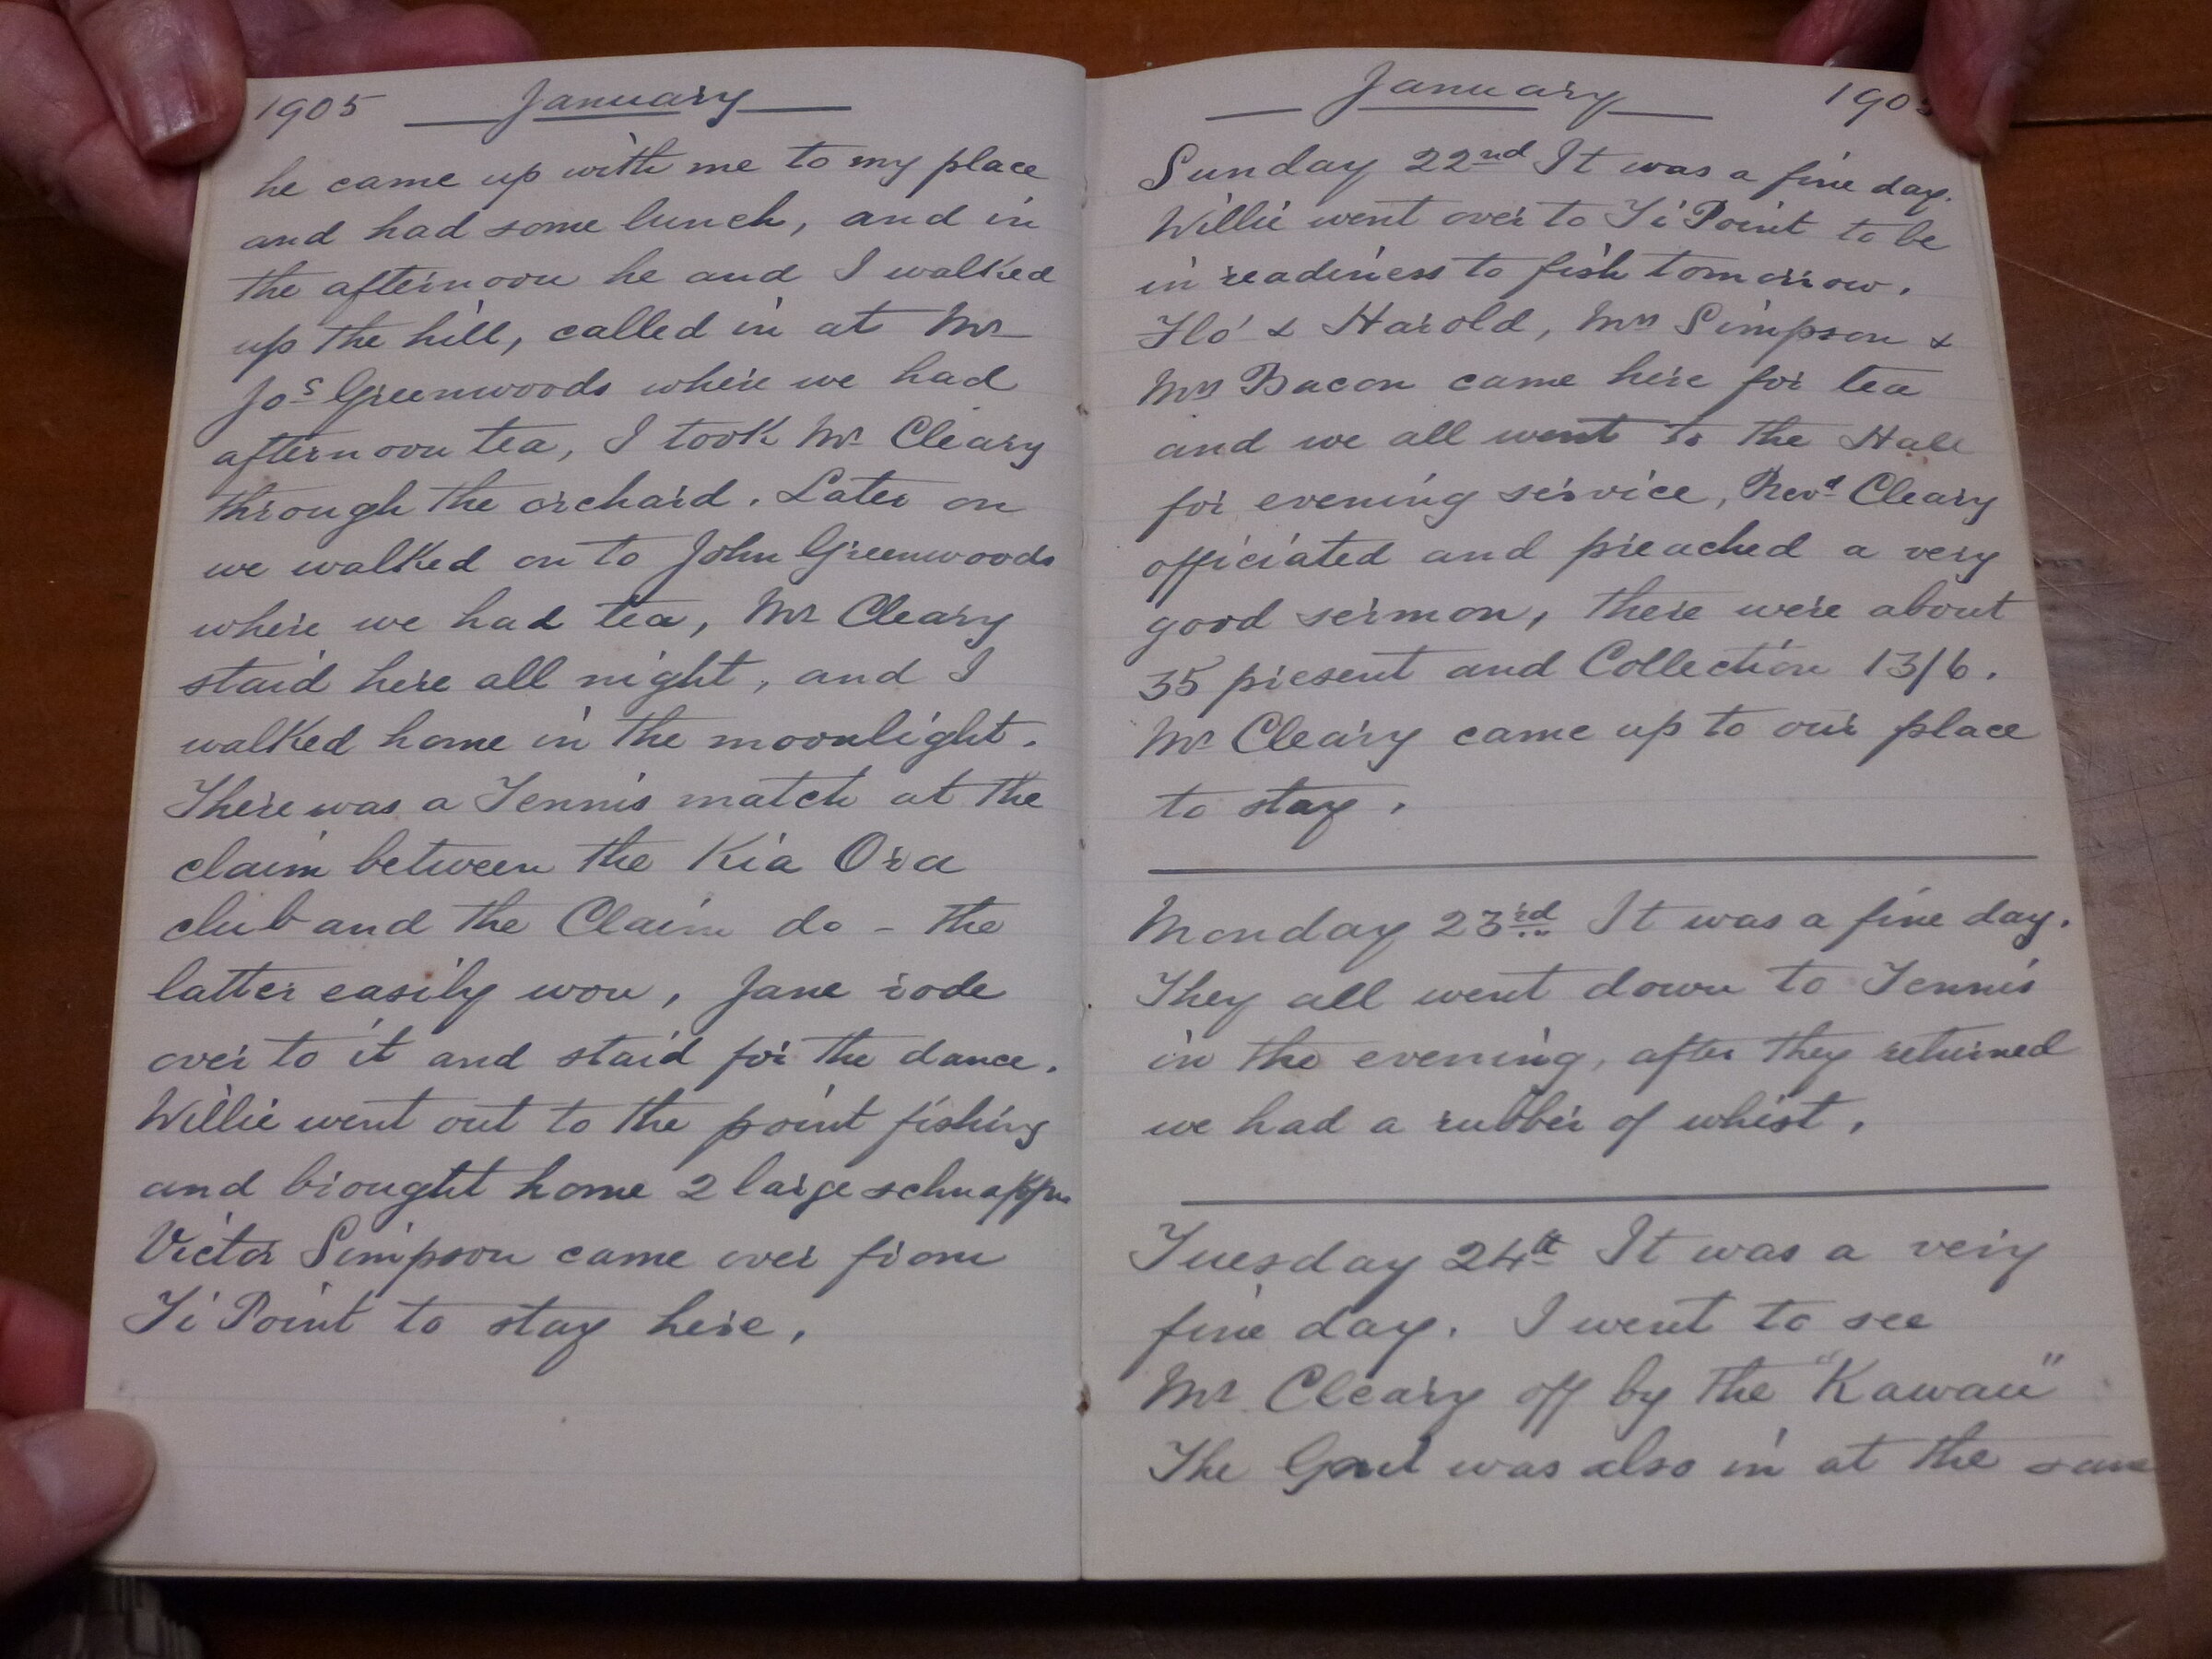 1905 January
he came up with me to my place
and had some lunch, and in
the afternoon he and I walked
up the hill, called in at Mr
Jos Greenwoods where we had
afternoon tea, I took Mr Cleary
through the orchard. Later on
we walked on to John Greenwoods
where we had tea, Mr Cleary
staid here all night, and I
walked home in the moonlight.
There was a Tennis match at the
claim between the Kia Ora
club and the Claim do - the
latter easily won, Jane rode
over to it and staid for the dance.
Willie went out to the point fishing
and brought home 2 large schnapper
Victor Simpson came over from
Ti Point to stay here.
January 1905
Sunday 22nd It was a fine day.
Willie went over to Ti Point to be
in readiness to fish tomorrow.
Flo' & Harold, Mrs Simpson &
Mrs Bacon came here for tea
and we all went to the Hall
for evening service, Revd Cleary
officiated and preached a very
good sermon, there were about
35 present and Collection 13/6.
Mr Cleary came up to our place
to stay.
Monday 23rd It was a fine day.
They all went down to Tennis
in the evening, after they returned
we had a rubber of whist.
Tuesday 24th It was a very
fine day. I went to see
Mr Cleary off by the "Kawau"
The was also in at the same